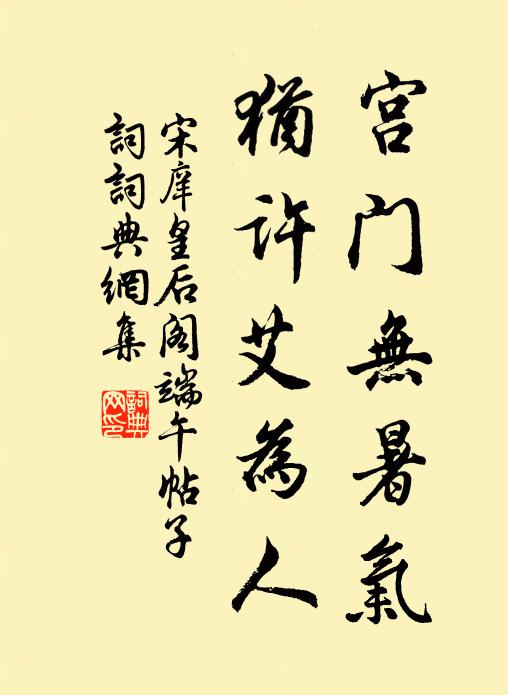 宫门無暑氣
猶许艾為人
宋庠皇后阁端午帖子
詞詞典網集
詞典网印